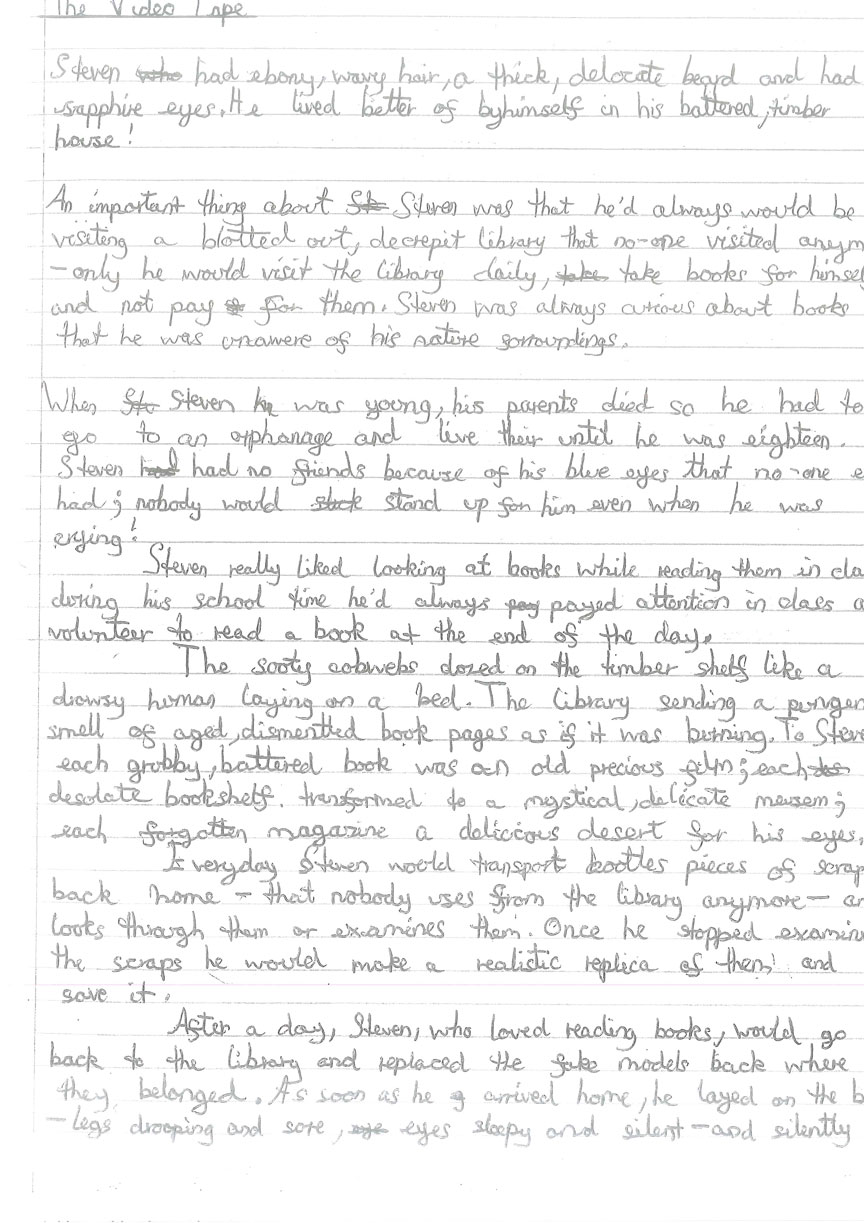 The Video Tape
Steven who had ebony, wavy hair, a thick, delocate beard and had
sapphire eyes. He lived better of byhimself in his battered, timber
house!
An important thing about St Steven was that he'd always would be
visiting a blotted out, decrepit library that no-one visited anym
-only he would visit the library daily, take take books for himsel
and not pay for them. Steven was always curious about books
that he was unawere of his nature sorroundings.
When St Steven was young, his parents died so he had to
go to an orphanage and live their until he was eighteen.
Steven had had no friends because of his blue eyes that no-one e
had; nobody would stand up for him even when he was
crying!
Steven really liked looking at books while reading them in cla
during his school time he'd always pay payed attention in class a
volunteer to read a book at the end of the day.
The sooty cobwebs dozed on the timber shelf like a
drowsy human laying on a bed. The library sending a pungen
smell of aged, dismentted book pages as if it was burning. To Steve
each grubby, battered book was an old precious film; each
desolate bookshelf. transformed to a mystical, delicate meusem;
each forgotten magazine a delicious desert for his eyes.
Everyday Steven would transport bootles pieces of scrap
back home - that nobody uses from the library anymore - an
looks through them or examines them. Once he stopped examin
the scraps he would make a realistic replica of them! and
save it.
After a day, Steven, who loved reading books, would go
back to the library and replaced the fake models back where
they belonged. As soon as he arrived home, he layed on the b
-legs drooping and sore, eye eyes sleepy and silent - and silently